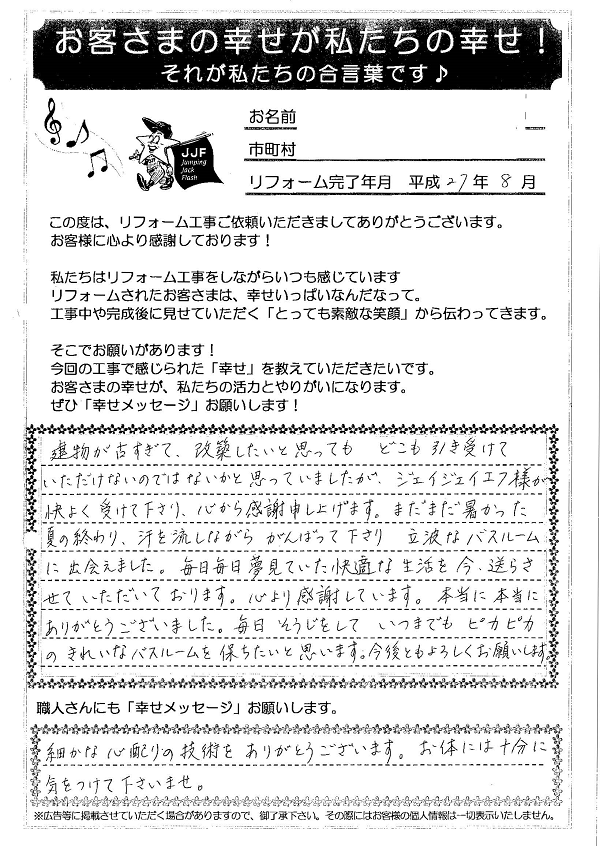 お客さまの幸せが私たちの幸せ！
それが私たちの合言葉です♪
JJF
Jumping
Jack
Flash
お名前
市町村
リフォーム完了年月　平成27年8月
この度は、リフォーム工事ご依頼いただきましてありがとうございます。
お客様に心より感謝しております！
私たちはリフォーム工事をしながらいつも感じています
リフォームされたお客さまは、幸せいっぱいなんだなって。
工事中や完成後に見せていただく「とっても素敵な笑顔」から伝わってきます。
そこでお願いがあります！
今回の工事で感じられた「幸せ」を教えていただきたいです。
お客さまの幸せが、私たちの活力とやりがいになります。
ぜひ「幸せメッセージ」お願いします！
建物が古すぎて、改築したいと思っても　どこも引き受けて
いただけないのではないかと思っていましたが、ジェイジェイエフ様が
快よく受けて下さり、心から感謝申し上げます。まだまだ暑かった
夏の終わり、汗を流しながら がんばって下さり　立波なバスルーム
に出会えました。毎日毎日夢見ていた快適な生活を今、送らさ
せていただいております。心より感謝しています。本当に本当に
ありがとうございました。毎日そうじをして　いつまでも ピカピカ
のきれいなバスルームを保ちたいと思います。今後ともよろしくお願いします
職人さんにも「幸せメッセージ」お願いします。
細かな心配りの技術を ありがとうございます。お体には十分に
気をつけて下さいませ。
※広告等に掲載させていただく場合がありますので、御了承下さい。その際にはお客様の個人情報は一切表示いたしません。